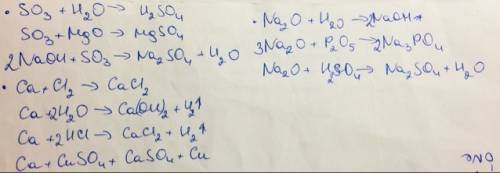 · SO₃ + H₂O → H₂SO₄
SO₃ + MgO → MgSO₄
2NaOH + SO₃ → Na₂SO₄ + H₂O
· Ca + Cl₂ → CaCl₂
Ca + 2H₂O → Ca(OH)₂ + H₂↑
Ca + 2HCl → CaCl₂ + H₂↑
Ca + CuSO₄ → CaSO₄ + Cu
· Na₂O + H₂O → 2NaOH
3Na₂O + P₂O₅ → 2Na₃PO₄
Na₂O + H₂SO₄ → Na₂SO₄ + H₂O